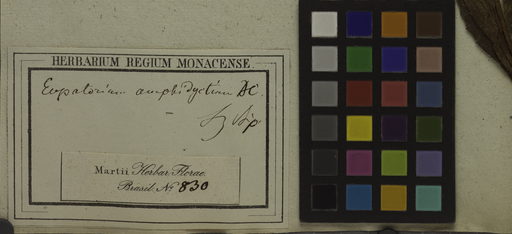 HERBARIUM REGIUM MONACENSE.
Eupatorium amphidyctium DC.
Martii Herbar. Florae
Brasil. No. 830